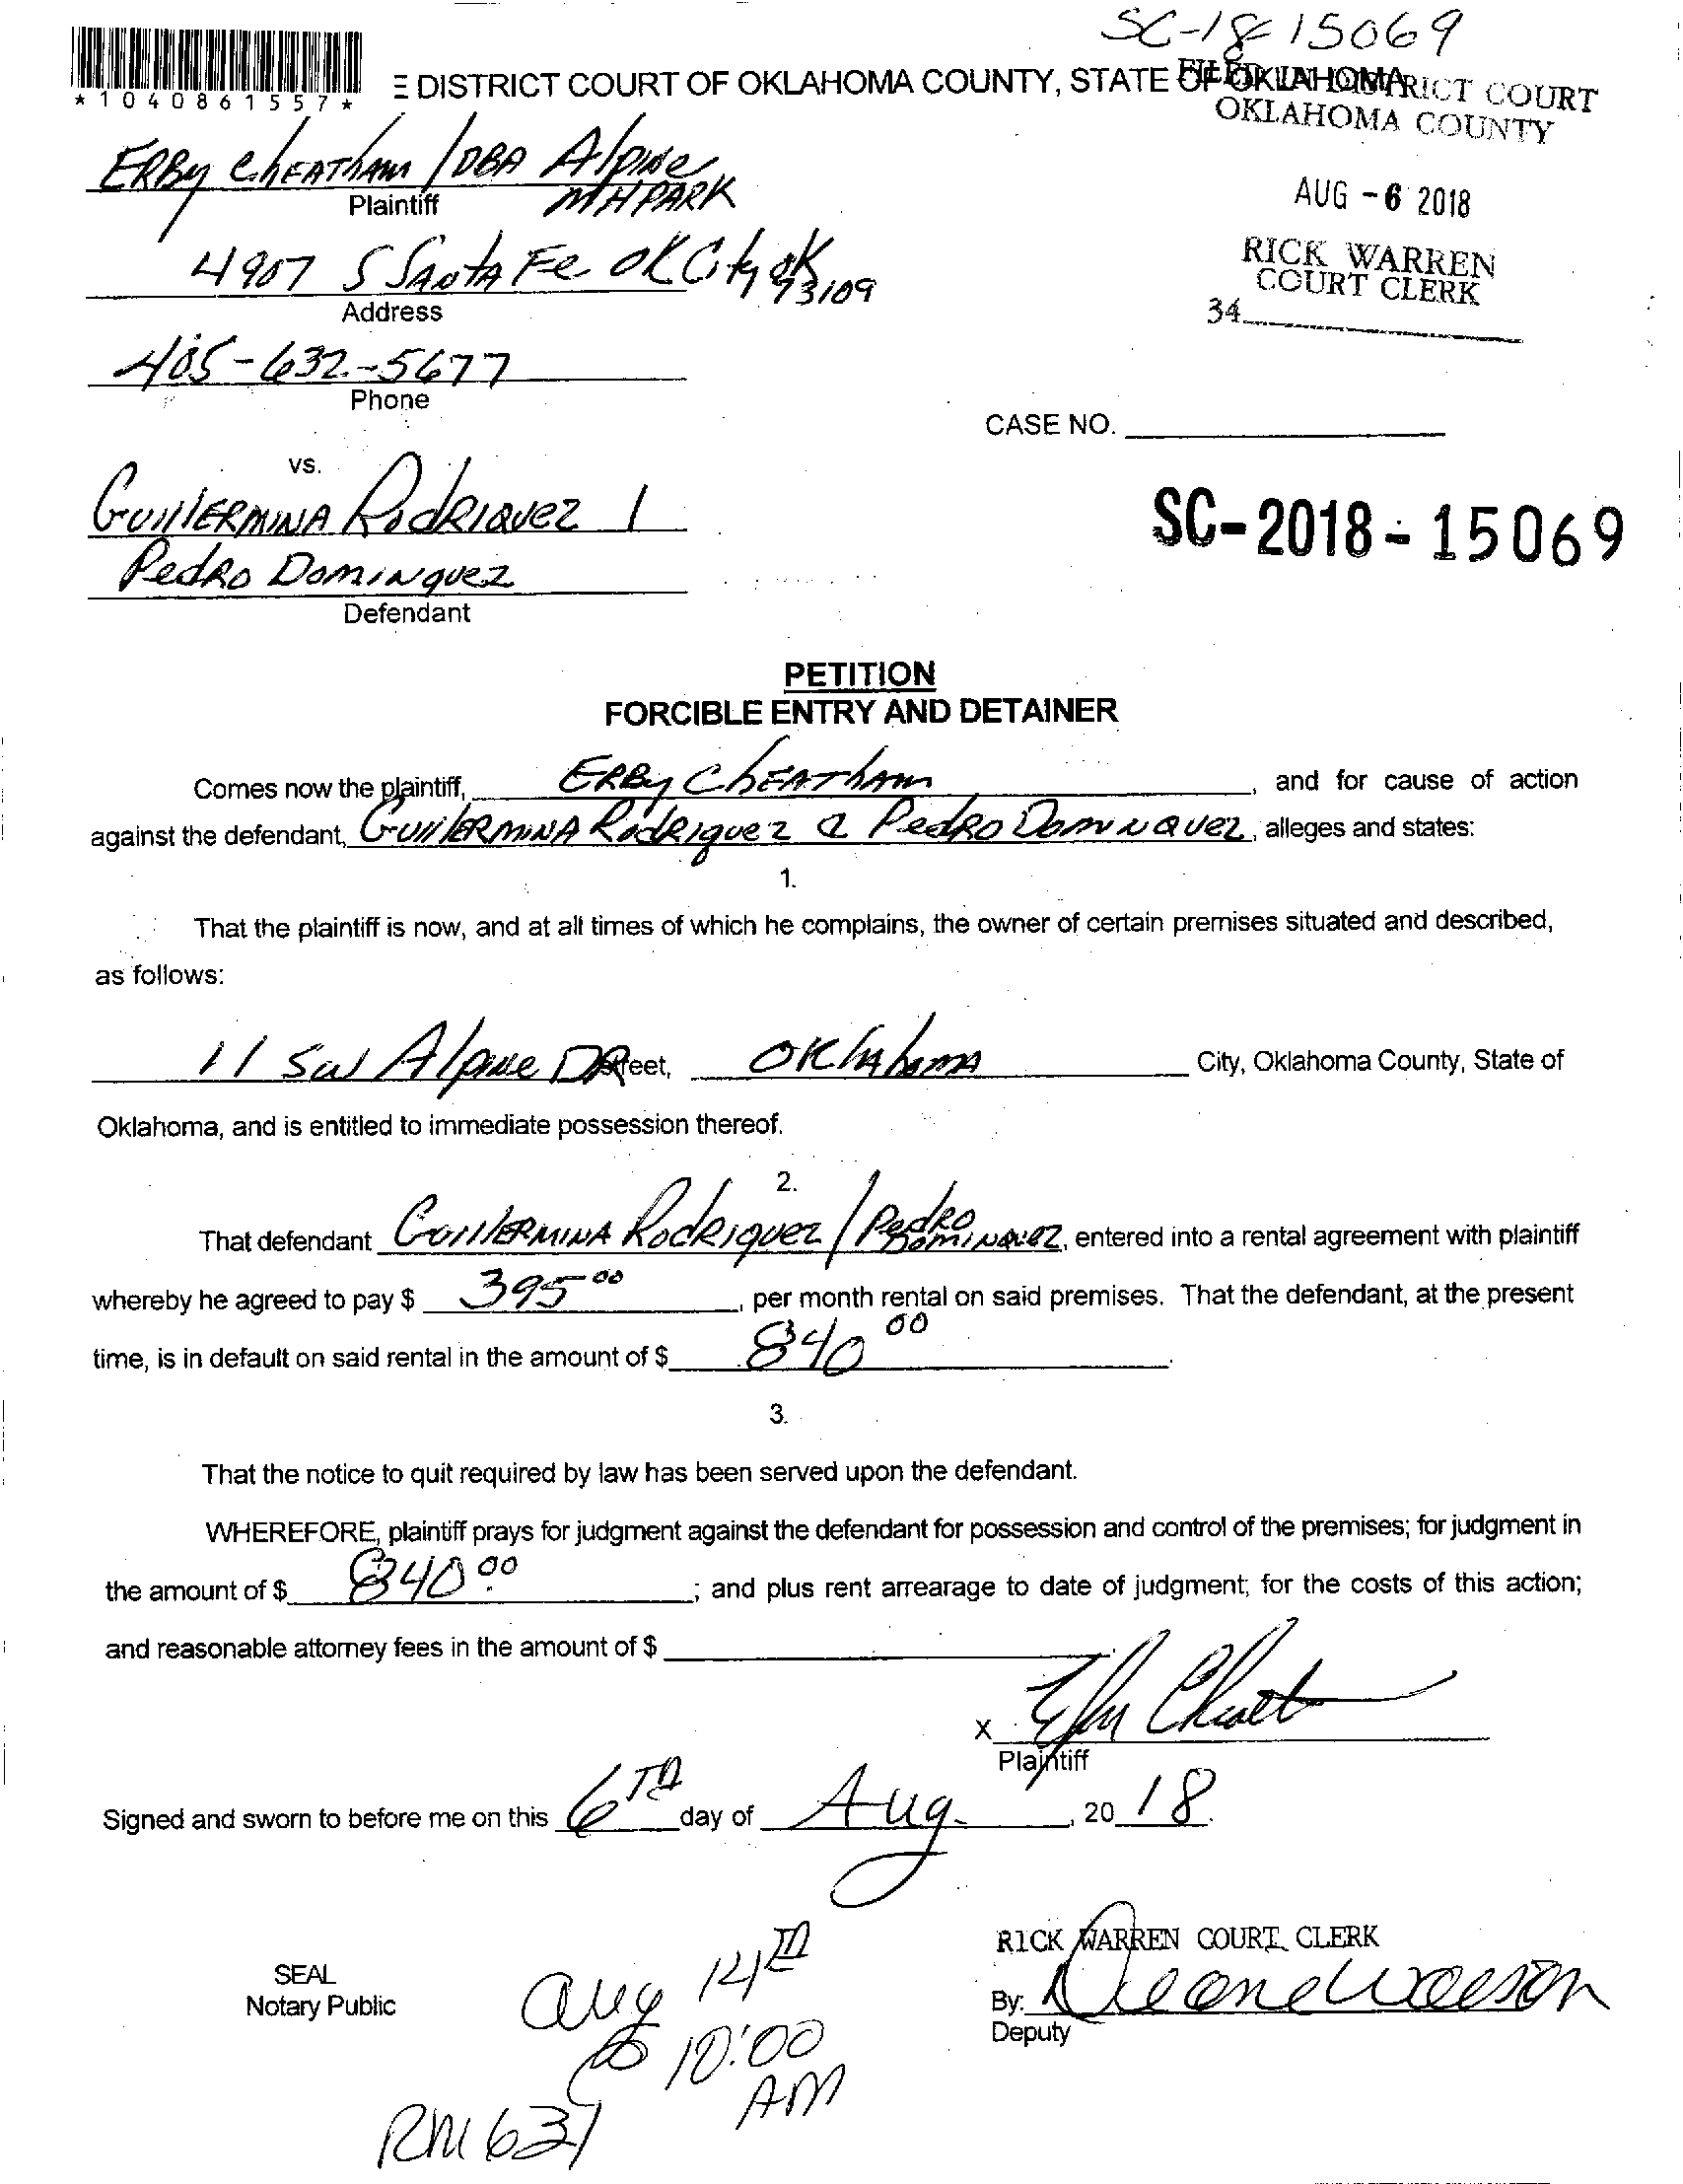 SC-18-15069
*1040861557*
E DISTRICT COURT OF OKLAHOMA COUNTY, STATE OF OKLAHOMA
FILED IN DISTRICT COURT
OKLAHOMA COUNTY
ERBy ChEAThAm / DBA Alpine
MH PARK
Plaintiff
AUG -6 2018
4907 S SANtA Fe OK City OK 73109
Address
RICK WARREN
COURT CLERK
34
405-632-5677
Phone
CASE NO.
vs.
GuillERMINA RodRiquez /
SC-2018-15069
PedRo DomiNquez
Defendant
PETITION
FORCIBLE ENTRY AND DETAINER
Comes now the plaintiff, ERBy ChEATham, and for cause of action
against the defendant, GuillERMINA RodRiquez & PedRo DomiNquez, alleges and states:
1.
That the plaintiff is now, and at all times of which he complains, the owner of certain premises situated and described,
as follows:
11 SW Alpine DR Street, OKlahoma City, Oklahoma County, State of
Oklahoma, and is entitled to immediate possession thereof.
2.
That defendant GuillERMINA RodRiquez / PedRo DomiNquez, entered into a rental agreement with plaintiff
whereby he agreed to pay $ 395 00, per month rental on said premises. That the defendant, at the present
time, is in default on said rental in the amount of $ 840 00.
3.
That the notice to quit required by law has been served upon the defendant.
WHEREFORE, plaintiff prays for judgment against the defendant for possession and control of the premises; for judgment in
the amount of $ 840 00; and plus rent arrearage to date of judgment; for the costs of this action;
and reasonable attorney fees in the amount of $
X
Plaintiff
Signed and sworn to before me on this 6TH day of Aug., 20 18.
RICK WARREN COURT CLERK
SEAL
Notary Public
By:
Deputy
Aug 14th
@ 10:00
AM
RM 637